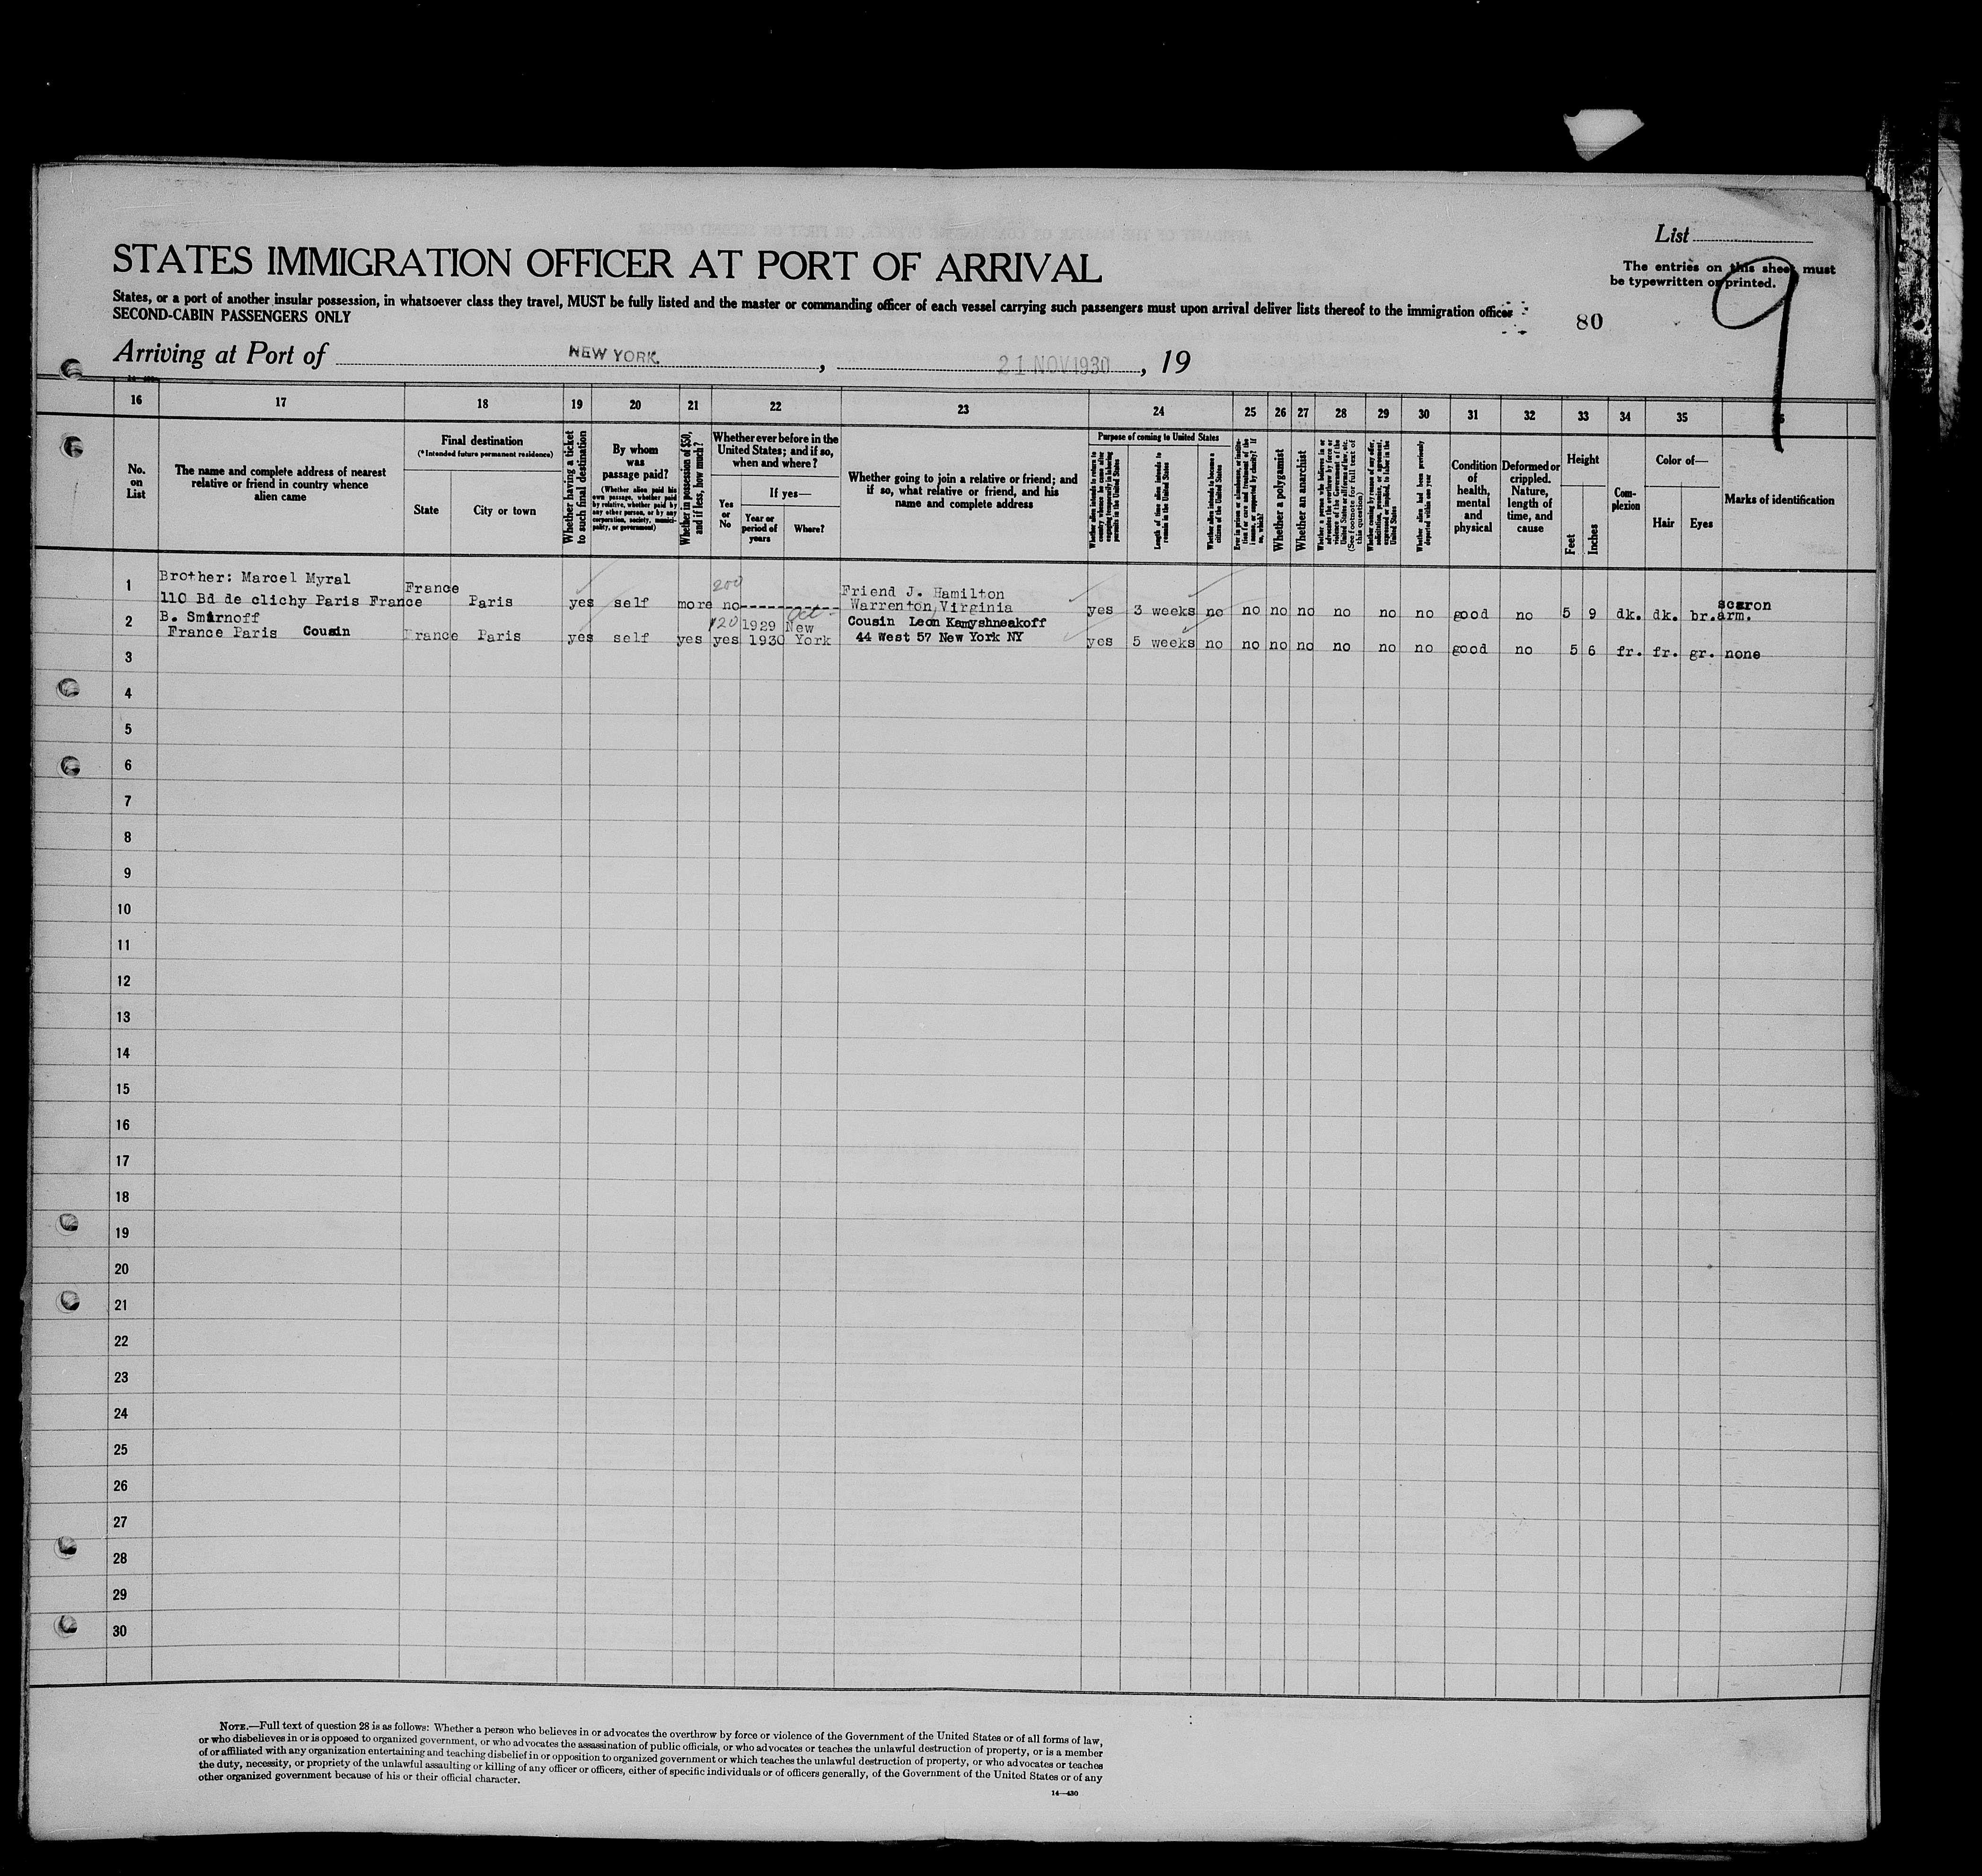 List
The entries on this sheet must
be typewritten or printed.
9
80
STATES IMMIGRATION OFFICER AT PORT OF ARRIVAL
States, or a port of another insular possession, in whatsoever class they travel, MUST be fully listed and the master or commanding officer of each vessel carrying such passengers must upon arrival deliver lists thereof to the immigration officer
SECOND-CABIN PASSENGERS ONLY
Arriving at Port of NEW YORK, 21 NOV 1930, 19
16 17 18 19 20 21 22 23 24 25 26 27 28 29 30 31 32 33 34 35
No.
on
List
The name and complete address of nearest
relative or friend in country whence
alien came
Final destination
(*Intended future permanent residence)
State
City or town
Whether having a ticket
to such final destination
By whom
was
passage paid?
(Whether alien paid his
own passage, whether paid
by relative, whether paid by
any other person, or by any
corporation, society, munici-
pality, or government)
Whether in possession of $50,
and if less, how much?
Whether ever before in the
United States; and if so,
when and where?
Yes
or
No
If yes—
Year or
period of
years
Where?
Whether going to join a relative or friend; and
if so, what relative or friend, and his
name and complete address
Purpose of coming to United States
Whether alien intends to return to
country whence he came after
engaging temporarily in laboring
pursuits in the United States
Length of time alien intends to
remain in the United States
Whether alien intends to become a
citizen of the United States
Ever in prison or almshouse, or institu-
tion for care and treatment of the
insane, or supported by charity? If
so, which?
Whether a polygamist
Whether an anarchist
Whether a person who believes in or
advocates the overthrow by force or
violence of the Government of the
United States or all forms of law, etc.
(See footnote for full text of
this question)
Whether coming by reason of any offer,
solicitation, promise, or agreement,
expressed or implied, to labor in the
United States
Whether alien had been previously
deported within one year
Condition
of
health,
mental
and
physical
Deformed or
crippled.
Nature,
length of
time, and
cause
Height
Feet
Inches
Com-
plexion
Color of—
Hair
Eyes
Marks of identification
1 Brother: Marcel Myral
110 Bd de clichy Paris France France Paris yes self more 200 no Friend J. Hamilton
Warrenton, Virginia yes 3 weeks no no no no no no no good no 5 9 dk. dk. br. scaron
arm.
2 B. Smirnoff
France Paris Cousin France Paris yes self yes 120 yes 1929
1930 New
York Cousin Leon Kamyshneakoff
44 West 57 New York NY yes 5 weeks no no no no no no no good no 5 6 fr. fr. gr. none
3
4
5
6
7
8
9
10
11
12
13
14
15
16
17
18
19
20
21
22
23
24
25
26
27
28
29
30
NOTE.—Full text of question 28 is as follows: Whether a person who believes in or advocates the overthrow by force or violence of the Government of the United States or of all forms of law,
or who disbelieves in or is opposed to organized government, or who advocates the assassination of public officials, or who advocates or teaches the unlawful destruction of property, or is a member
of or affiliated with any organization entertaining and teaching disbelief in or opposition to organized government or which teaches the unlawful destruction of property, or who advocates or teaches
the duty, necessity, or propriety of the unlawful assaulting or killing of any officer or officers, either of specific individuals or of officers generally, of the Government of the United States or of any
other organized government because of his or their official character.
14—430